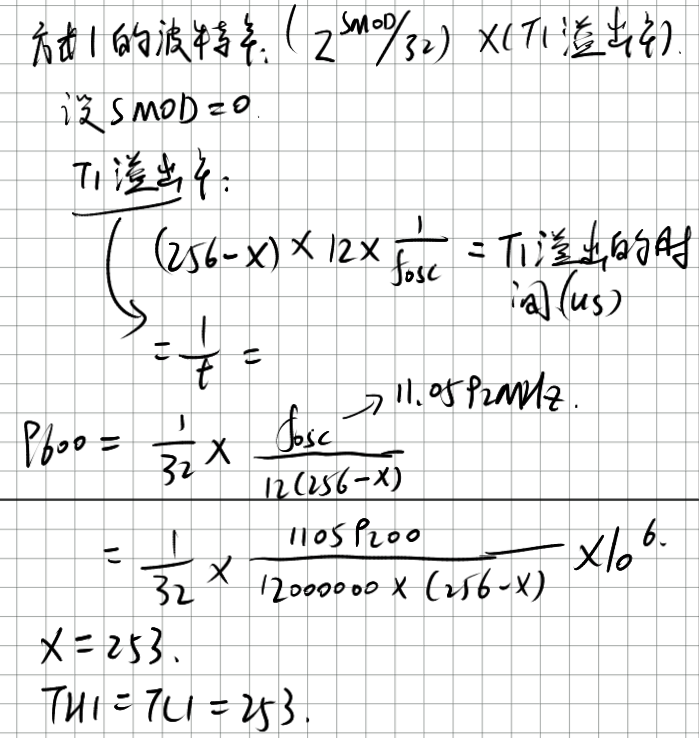 方式1的波特率:(2^SMOD/32)×(T1溢出率).
设SMOD=0.
T1溢出率:
(256-X)×12×1/fosc = T1溢出的时
间(us)
=1/t =
9600 = 1/32 × fosc/12(256-X) → 11.0592MHz.
= 1/32 × 11059200/12000000×(256-X) ×10^6.
X=253.
TH1=TL1=253.